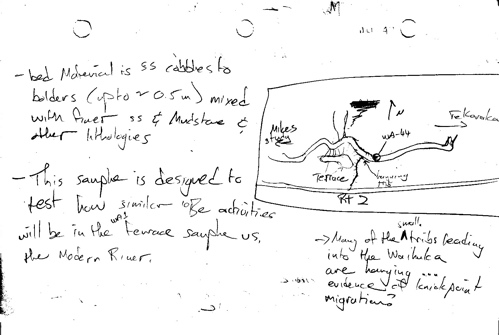 - bed Material is ss cobbles to
bolders (up to ~ 0.5m) mixed
with finer ss & Mudstone &
other lithologies
- This sample is designed to
test how similar 10Be activities
will be in the terrace sample vs.
the Modern River.
N
Te Karaka
Mikes
study
WA-44
Terrace
hanging
trib
Rt 2
small
→ Many of the ^ tribs leading
into the Waihuka
are hanging ....
evidence of knickpoint
migration?